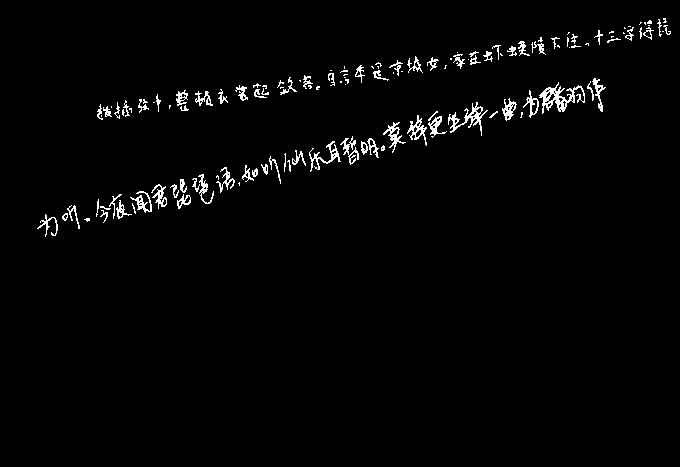 拨插弦中,整顿衣裳起敛容。自言本是京城女,家在虾蟆陵下住。十三学得琵
为听。今夜闻君琵琶语,如听仙乐耳暂明。莫辞更坐弹一曲,为君翻